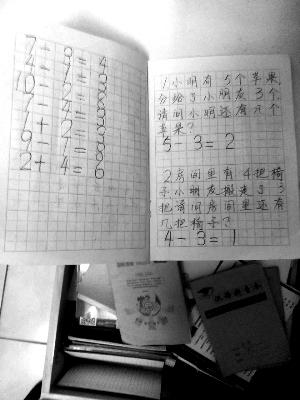 7 - 3 = 4
4 - 1 = 3
10 - 2 = 8
1 + 2 = 3
9 - 1 = 8
2 + 4 = 6
1 小明有 5个苹果,
分给了小朋友 3个,
请问小明还有几个
苹果?
5 - 3 = 2
2 房间里有 4把椅
子小朋友搬走了 3
把请问房间里还有
几把椅子?
4 - 3 = 1